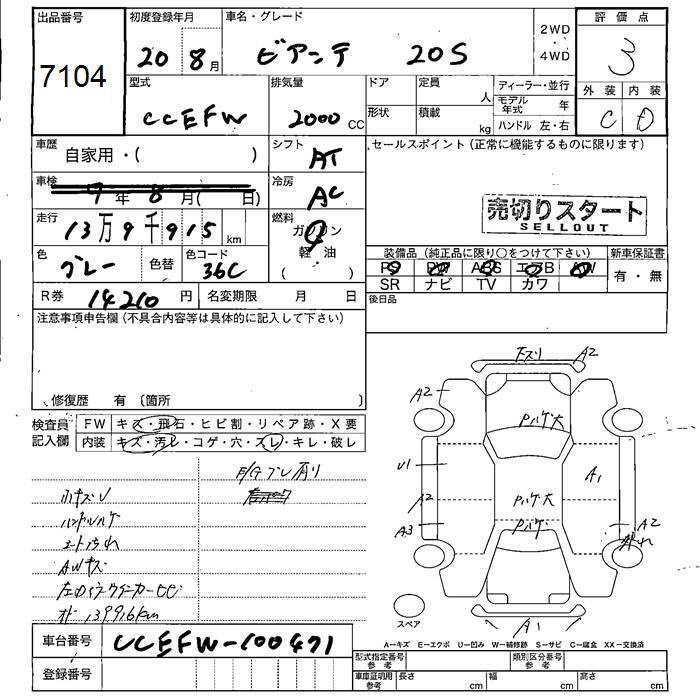 出品番号
7104
初度登録年月
20 8月
車名・グレード
ビアンテ 20S
2WD
4WD
評価点
3
型式
CCEFW
排気量
2000 CC
ドア
形状
定員
人
積載
kg
ディーラー・並行
モデル年式 年
ハンドル 左・右
外装 内装
C D
車歴
自家用・( )
シフト
AT
セールスポイント(正常に機能するものに限ります)
車検
7年 8月( 日)
冷房
AC
売切りスタート
SELLOUT
走行
13万9千915 km
燃料
ガソリン
軽油
色
グレー
色替
色コード
36C
装備品(純正品に限り○をつけて下さい)
新車保証書
PS PW ABS エアB AW
SR ナビ TV カワ
有・無
R券 14210円
名変期限 月 日
後日品
注意事項申告欄(不具合内容等は具体的に記入して下さい)
修復歴 有 〔箇所 〕
検査員記入欄
FW キズ・飛石・ヒビ割・リペア跡・X要
内装 キズ・汚レ・コゲ・穴・スレ・キレ・破レ
小キズU
ハンドルハゲ
シートよごれ
AWキズ
オド 139916km
下スリ A2
A2
Pハゲ大
U1
A1
A2
Pハゲ大
A3
Pハゲ
A2
スペア
A1
A−キズ E−エクボ U−凹み W−補修跡 S−サビ C−腐食 XX−交換済
車台番号
CCEFW-100471
登録番号
型式指定番号 参考
類別区分番号 参考
車庫証明用 参考
長さ cm
幅 cm
高さ cm